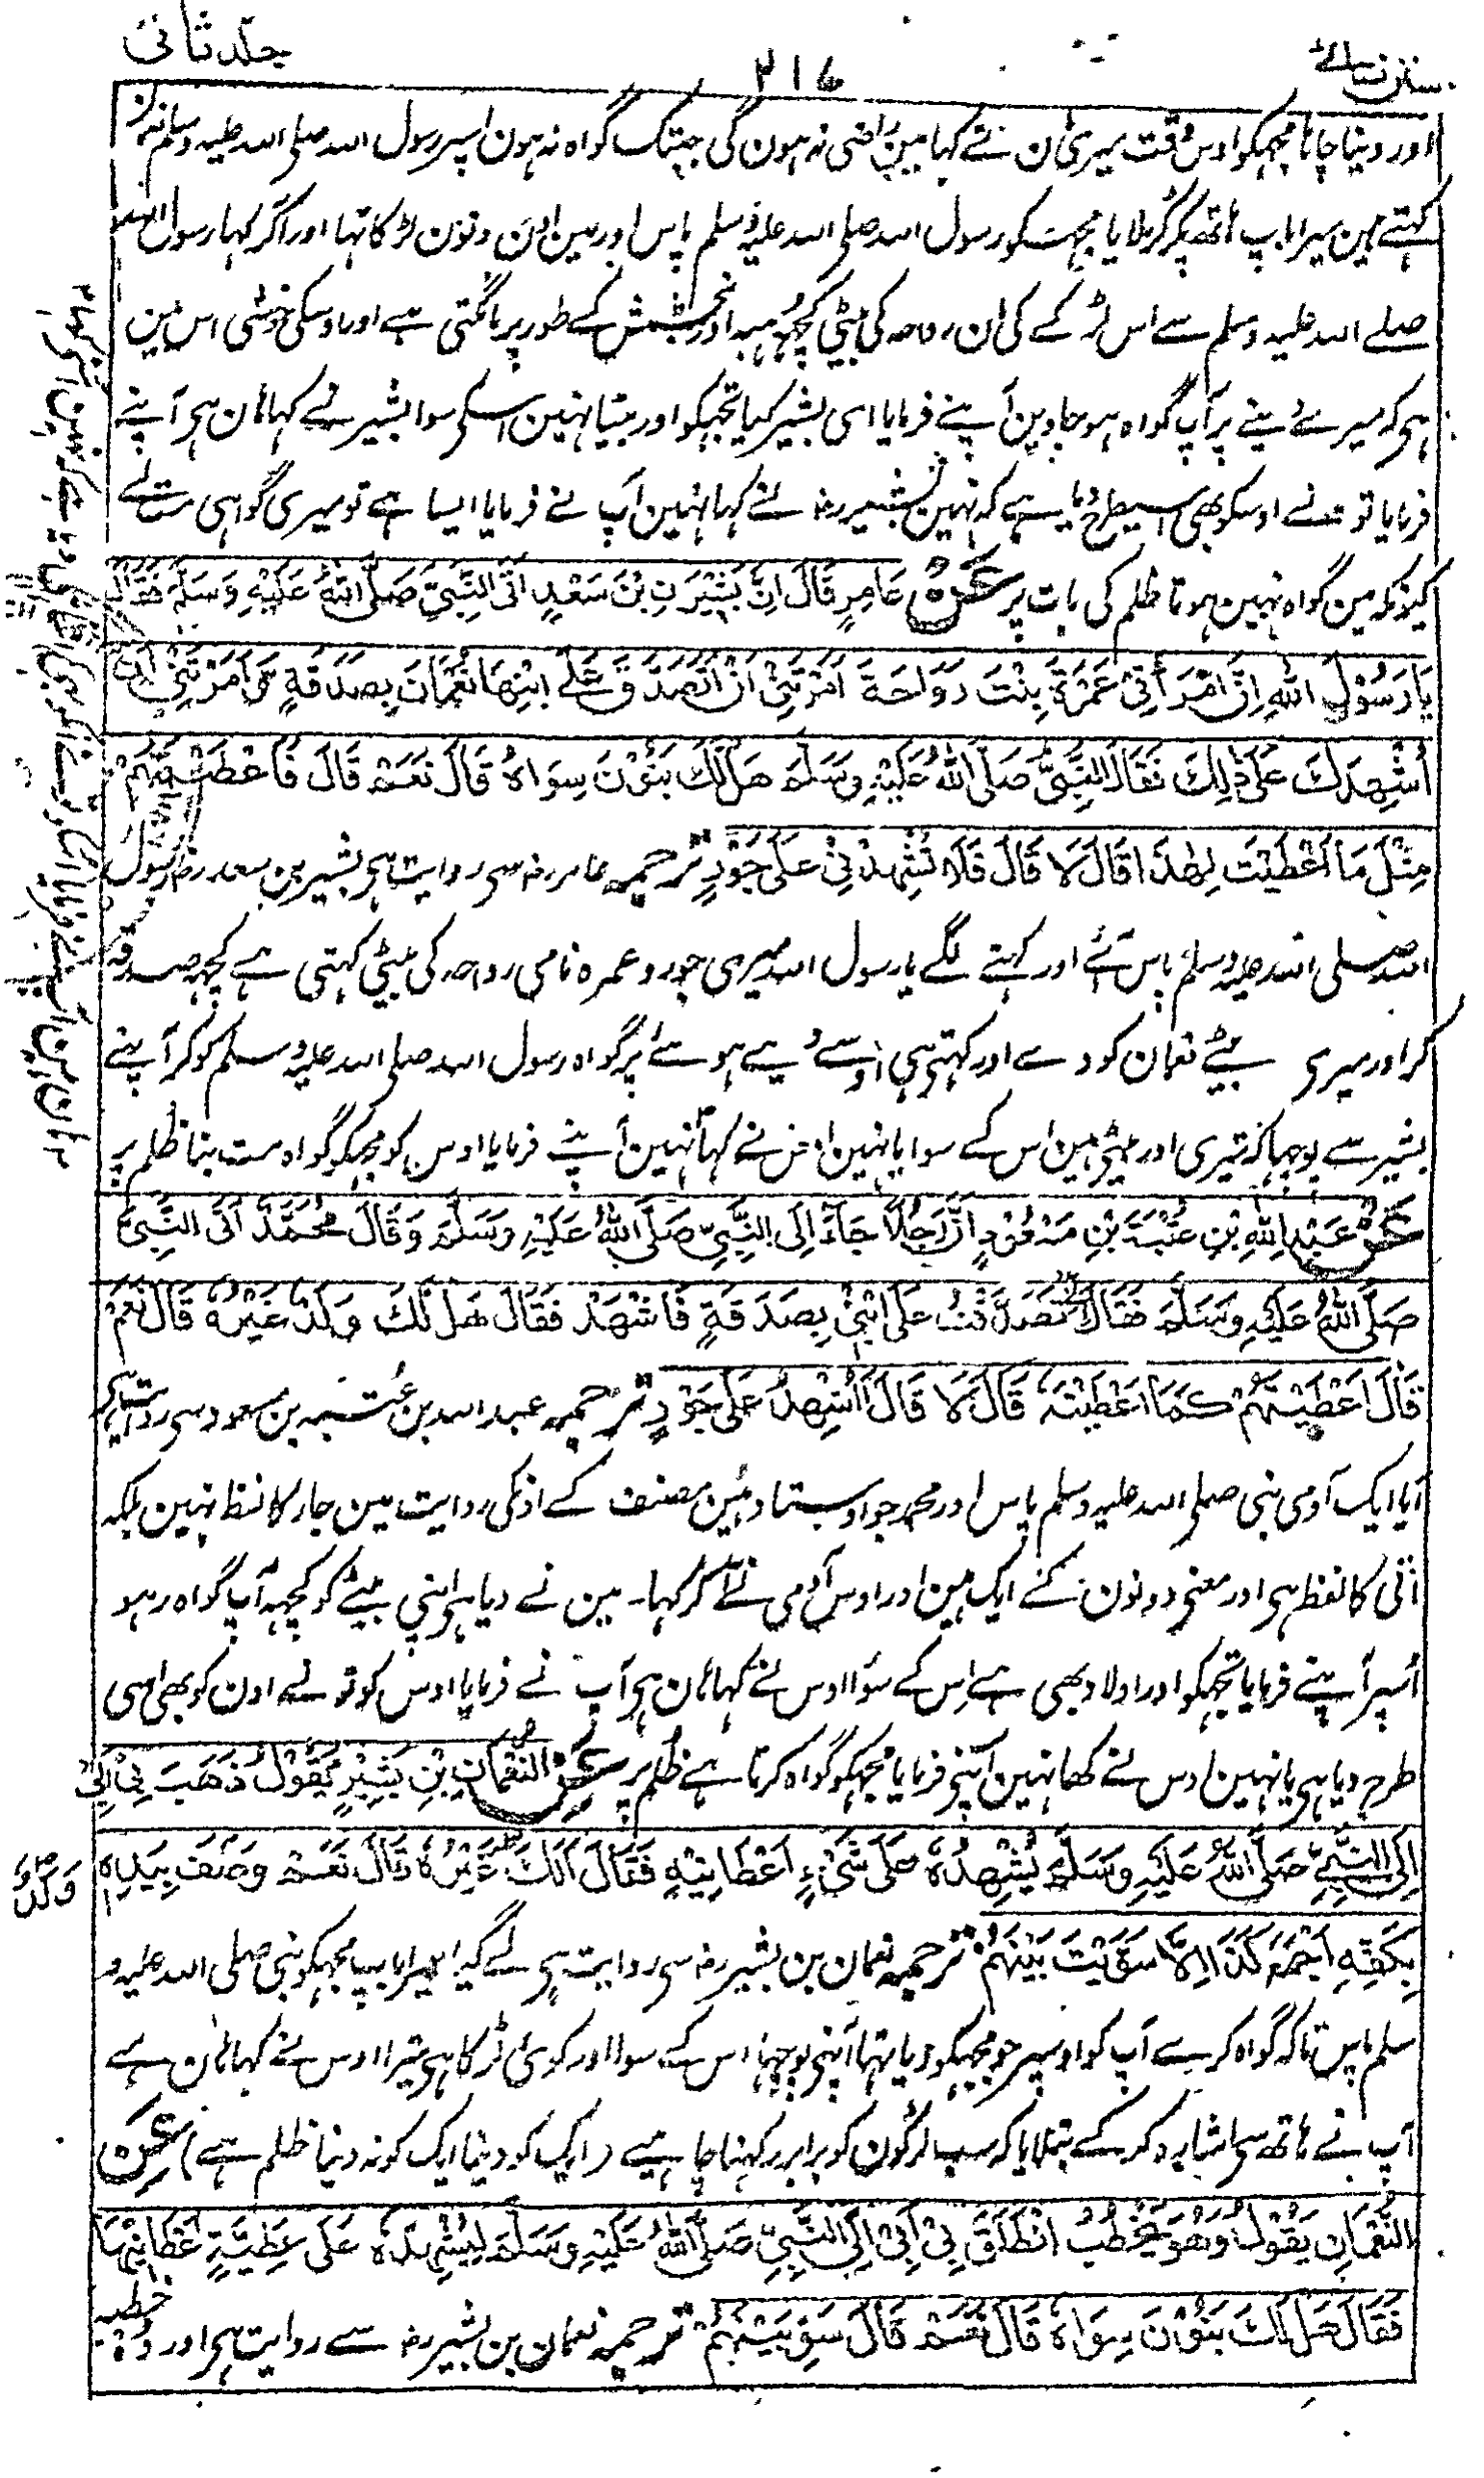 سنن نسائے
۲۱۷
جلد ثانی
اور دینا چاہا مجھکو اوس وقت میری مان نے کہا مین راضی نہ ہون گی جبتک گواہ نہ ہون اسپر رسول اللہ صلی اللہ علیہ وسلم نعمان
کہتے ہین میرا باپ ہاتھ پکڑ کر لایا مجہت کو رسول اللہ صلی اللہ علیہ وسلم پاس اور مین اون دنون لڑکا تہا اور آکر کہا رسول اللہ
صلے اللہ علیہ وسلم سے اس لڑکے کی مان رواحہ کی بیٹی کچھ ہبہ اور بخشش کے طور پر مانگتی ہے اور اوسکی خوشی اس مین
ہی کہ میرے دینے پر آپ گواہ ہو جاوین آپنے فرمایا ای بشیر کیا تجہکو اور بیٹا نہین اسکی سوا بشیر نے کہا ہان ہی آپنے
فرمایا تو نے اوسکو بھی اسیطرح دیا ہے کہ نہین بشیر رضہ نے کہا نہین آپ نے فرمایا ایسا ہے تو میری گواہی مت لے
کیونکہ مین گواہ نہین ہوتا ظلم کی بات پر عَنْ عَامِرٍ قَالَ اِنَّ بَشِيْرَ بْنَ سَعْدٍ اَتَى النَّبِيَّ صَلَّى اللهُ عَلَيْهِ وَسَلَّمَ فَقَالَ
يَا رَسُوْلَ اللهِ اِنَّ امْرَأَتِيْ عَمْرَةَ بِنْتَ رَوَاحَةَ اَمَرَتْنِيْ اَنْ اَتَصَدَّقَ عَلَى ابْنِهَا نُعْمَانَ بِصَدَقَةٍ وَ اَمَرَتْنِيْ اَنْ
اُشْهِدَكَ عَلٰى ذٰلِكَ فَقَالَ النَّبِيُّ صَلَّى اللهُ عَلَيْهِ وَسَلَّمَ هَلْ لَكَ بَنُوْنَ سِوَاهُ قَالَ نَعَمْ قَالَ فَاَعْطَيْتَهُمْ
مِثْلَ مَا اَعْطَيْتَ لِهٰذَا قَالَ لَا قَالَ فَلَا تُشْهِدْنِيْ عَلٰى جَوْرٍ ترجمہ عامر رضہ سی روایت ہی بشیر بن سعد رضہ رسول
اللہ صلی اللہ علیہ وسلم پاس آئے اور کہنے لگے یا رسول اللہ میری جورو عمرہ نامی رواحہ کی بیٹی کہتی ہے کچہہ صدقہ
کر اور میری بیٹے نعمان کو دے اور کہتی ہی اوسے دیے ہوئے پر گواہ رسول اللہ صلی اللہ علیہ وسلم کو کر آپنے
بشیر سے پوچہا کہ تیری اور بیٹی ہین اس کے سوا یا نہین اوس نے کہا نہین آپنے فرمایا اوس کو مجہکو گواہ مت بنا ظلم پر
عَنْ عَبْدِ اللهِ بْنِ عُتْبَةَ بْنِ مَسْعُوْدٍ اَنَّ رَجُلًا جَاءَ اِلَى النَّبِيِّ صَلَّى اللهُ عَلَيْهِ وَسَلَّمَ وَقَالَ مُحَمَّدٌ اَتَى النَّبِيَّ
صَلَّى اللهُ عَلَيْهِ وَسَلَّمَ فَقَالَ تَصَدَّقْتُ عَلَى ابْنِيْ بِصَدَقَةٍ فَاشْهَدْ فَقَالَ هَلْ لَكَ وَلَدٌ غَيْرُهٗ قَالَ نَعَمْ
قَالَ اَعْطَيْتَهُمْ كَمَا اَعْطَيْتَهٗ قَالَ لَا قَالَ اَاُشْهِدُ عَلٰى جَوْرٍ ترجمہ عبد اللہ بن عتبہ بن مسعود سی روایت ہی کہ
آیا ایک آدمی نبی صلی اللہ علیہ وسلم پاس اور محمد جو اوستاد ہین مصنف کے اونکی روایت مین جار کا لفظ نہین بلکہ
اتی کا لفظ ہی اور معنی دونون کے ایک ہین اور اوس آدمی نے آکر کہا۔ مین نے دیا ہی اپنی بیٹے کو کچہہ آپ گواہ رہو
اسپر آپنے فرمایا تجہکو اور اولاد بھی ہے اس کے سوا اوس نے کہا ہان ہی آپ نے فرمایا اوس کو تونے اون کو بھی اسی
طرح دیا ہی یا نہین اوس نے کھا نہین آپنی فرمایا مجہکو گواہ کرتا ہے ظلم پر عَنِ النُّعْمَانِ بْنِ بَشِيْرٍ يَقُوْلُ ذَهَبَ بِيْ اَبِيْ
اِلَى النَّبِيِّ صَلَّى اللهُ عَلَيْهِ وَسَلَّمَ يُشْهِدُهٗ عَلٰى شَيْءٍ اَعْطَانِيْهِ فَقَالَ اَلَكَ غَيْرُهٗ قَالَ نَعَمْ وَصَفَّ بِيَدِهٖ
وَلَدٌ
بِكَفِّهٖ اَجْمَعَ كَذَا اَلَّا سَوَّيْتَ بَيْنَهُمْ ترجمہ نعمان بن بشیر رضہ سی روایت ہی لے گیا میرا باپ مجہکو نبی صلی اللہ علیہ و
سلم پاس تاکہ گواہ کرے آپ کو اوسپر جو مجہکو دیا تہا آپنی پوچہا اس کے سوا اور کوئی لڑکا ہی تیرا اوس نے کہا ہان ہے
آپ نے ہاتھ سی اشارہ کر کے بتلایا کہ سب لڑکون کو برابر رکہنا چاہیے (ایک کو دینا ایک کو نہ دینا ظلم ہے) عَنِ
النُّعْمَانِ يَقُوْلُ وَهُوَ يَخْطُبُ انْطَلَقَ بِيْ اَبِيْ اِلَى النَّبِيِّ صَلَّى اللهُ عَلَيْهِ وَسَلَّمَ لِيُشْهِدَهٗ عَلٰى عَطِيَّةٍ اَعْطَانِيْهَا
فَقَالَ هَلْ لَكَ بَنُوْنَ سِوَاهُ قَالَ نَعَمْ قَالَ سَوِّ بَيْنَهُمْ ترجمہ نعمان بن بشیر رضہ سے روایت ہی اور وہ خطبہ